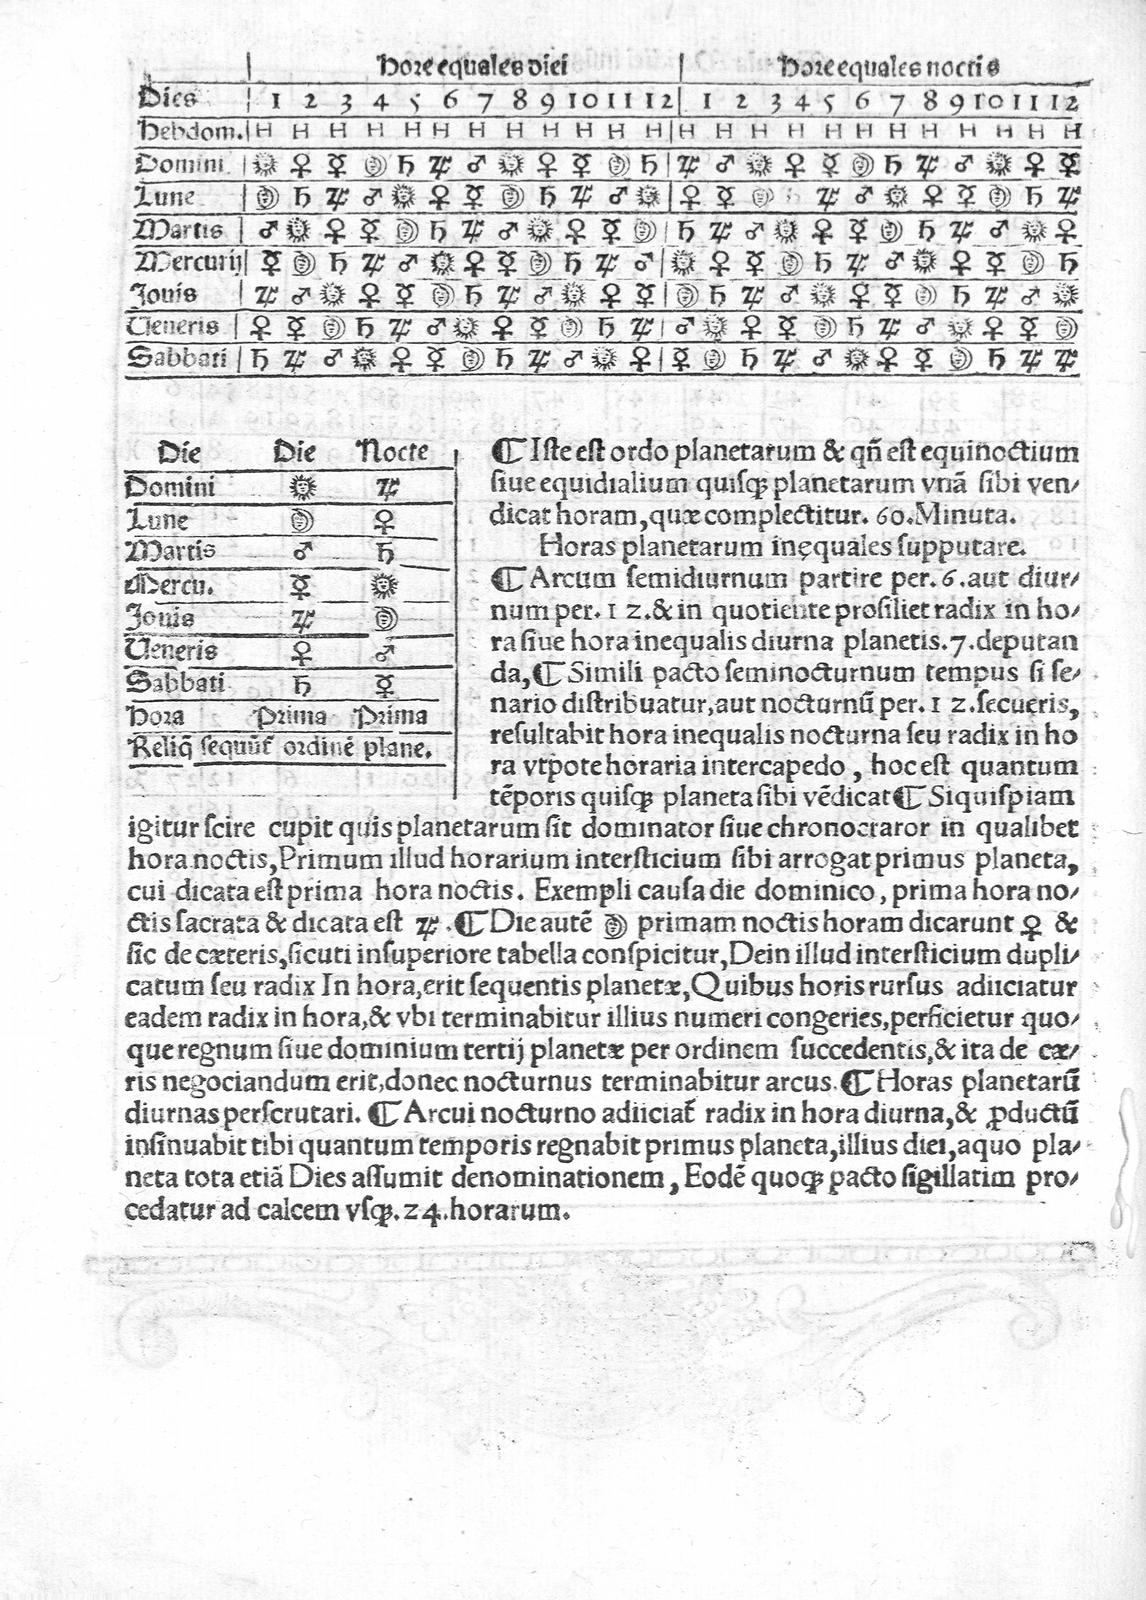 Hore equales diei Hore equales noctis
Dies 1 2 3 4 5 6 7 8 9 10 11 12 1 2 3 4 5 6 7 8 9 10 11 12
Hebdom. H H H H H H H H H H H H H H H H H H H H H H H H
Domini ☉ ♀ ☿ ☽ ♄ ♃ ♂ ☉ ♀ ☿ ☽ ♄ ♃ ♂ ☉ ♀ ☿ ☽ ♄ ♃ ♂ ☉ ♀ ☿
Lune ☽ ♄ ♃ ♂ ☉ ♀ ☿ ☽ ♄ ♃ ♂ ☉ ♀ ☿ ☽ ♄ ♃ ♂ ☉ ♀ ☿ ☽ ♄ ♃
Martis ♂ ☉ ♀ ☿ ☽ ♄ ♃ ♂ ☉ ♀ ☿ ☽ ♄ ♃ ♂ ☉ ♀ ☿ ☽ ♄ ♃ ♂ ☉ ♀
Mercurij ☿ ☽ ♄ ♃ ♂ ☉ ♀ ☿ ☽ ♄ ♃ ♂ ☉ ♀ ☿ ☽ ♄ ♃ ♂ ☉ ♀ ☿ ☽ ♄
Jouis ♃ ♂ ☉ ♀ ☿ ☽ ♄ ♃ ♂ ☉ ♀ ☿ ☽ ♄ ♃ ♂ ☉ ♀ ☿ ☽ ♄ ♃ ♂ ☉
Ueneris ♀ ☿ ☽ ♄ ♃ ♂ ☉ ♀ ☿ ☽ ♄ ♃ ♂ ☉ ♀ ☿ ☽ ♄ ♃ ♂ ☉ ♀ ☿ ☽
Sabbati ♄ ♃ ♂ ☉ ♀ ☿ ☽ ♄ ♃ ♂ ☉ ♀ ☿ ☽ ♄ ♃ ♂ ☉ ♀ ☿ ☽ ♄ ♃ ♃
Die Die Nocte
Domini ☉ ♃
Lune ☽ ♀
Martis ♂ ♄
Mercu. ☿ ☉
Jouis ♃ ☽
Ueneris ♀ ♂
Sabbati ♄ ☿
Hora Prima Prima
Reliq̃ sequũt̃ ordinẽ plane.
¶ Iste est ordo planetarum & qñ est equinoctium
siue equidialium quisqꝫ planetarum vnã sibi ven/
dicat horam, quæ complectitur. 60. Minuta.
Horas planetarum inęquales supputare.
¶ Arcum semidiurnum partire per. 6. aut diur/
num per. 12. & in quotiente prosiliet radix in ho/
ra siue hora inequalis diurna planetis. 7. deputan
da, ¶ Simili pacto seminocturnum tempus si se/
nario distribuatur, aut nocturnũ per. 12. secueris,
resultabit hora inequalis nocturna seu radix in ho
ra vtpote horaria intercapedo, hoc est quantum
tẽporis quisqꝫ planeta sibi vẽdicat ¶ Siquispiam
igitur scire cupit quis planetarum sit dominator siue chronocraror in qualibet
hora noctis, Primum illud horarium intersticium sibi arrogat primus planeta,
cui dicata est prima hora noctis. Exempli causa die dominico, prima hora no/
ctis sacrata & dicata est ♃. ¶ Die autẽ ☽ primam noctis horam dicarunt ♀ &
sic de cæteris, sicuti insuperiore tabella conspicitur, Dein illud intersticium dupli/
catum seu radix In hora, erit sequentis planetæ, Quibus horis rursus adiiciatur
eadem radix in hora, & vbi terminabitur illius numeri congeries, perficietur quo/
que regnum siue dominium tertij planetæ per ordinem succedentis, & ita de cæ/
ris negociandum erit, donec nocturnus terminabitur arcus. ¶ Horas planetarũ
diurnas perscrutari. ¶ Arcui nocturno adiiciat̃ radix in hora diurna, & ꝓductũ
insinuabit tibi quantum temporis regnabit primus planeta, illius diei, aquo pla/
neta tota etiã Dies assumit denominationem, Eodẽ quoqꝫ pacto sigillatim pro/
cedatur ad calcem vsqꝫ. 24. horarum.